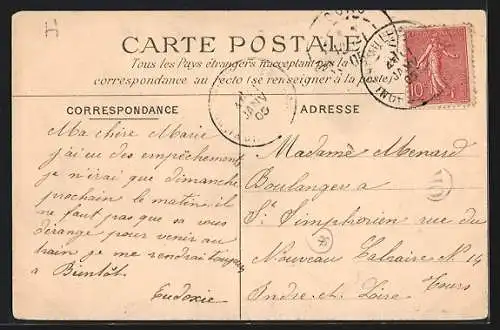 H
CARTE POSTALE
Tous les Pays étrangers n'acceptent pas la
correspondance au recto (se renseigner à la poste)
CORRESPONDANCE
Ma chère Marie
j'ai eu des empêchement
je n'irai que dimanche
prochain le matin il
ne faut pas que sa vous
dérange pour venir au
train je me rendrai toujours
a Bientôt.
Eudoxie
ADRESSE
Madame Menard
Boulanger a
St Simphorien rue du
Nouveau Calvaire N 14
Tours
Indre et Loire
10
JANV
05